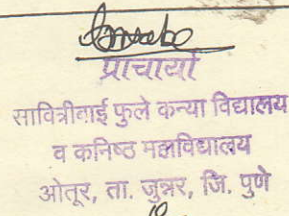 प्राचार्या
सावित्रीबाई फुले कन्या विद्यालय
व कनिष्ठ महाविद्यालय
ओतूर, ता. जुन्नर, जि. पुणे